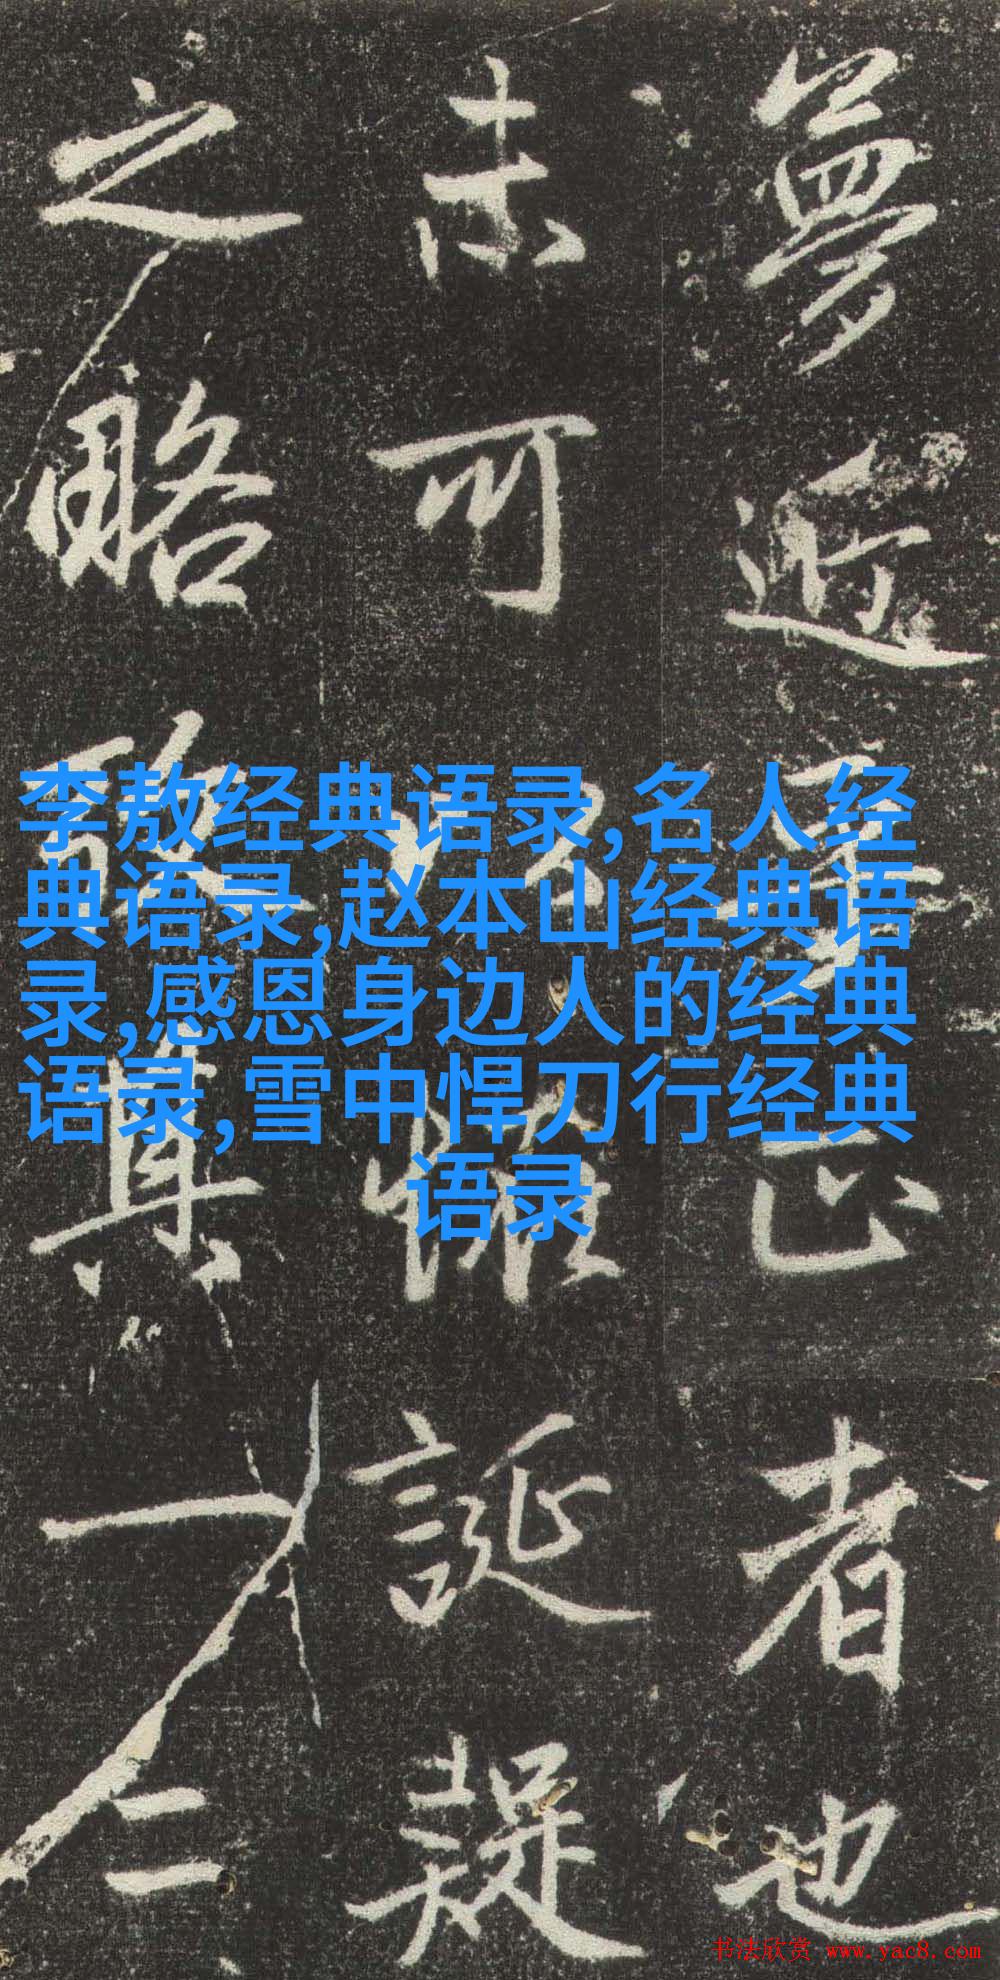 夢近正者也
可惟誕疑
之略其一二
李敖经典语录,名人经
典语录,赵本山经典语
录,感恩身边人的经典
语录,雪中悍刀行经典
语录
书法欣赏 www.yac8.com